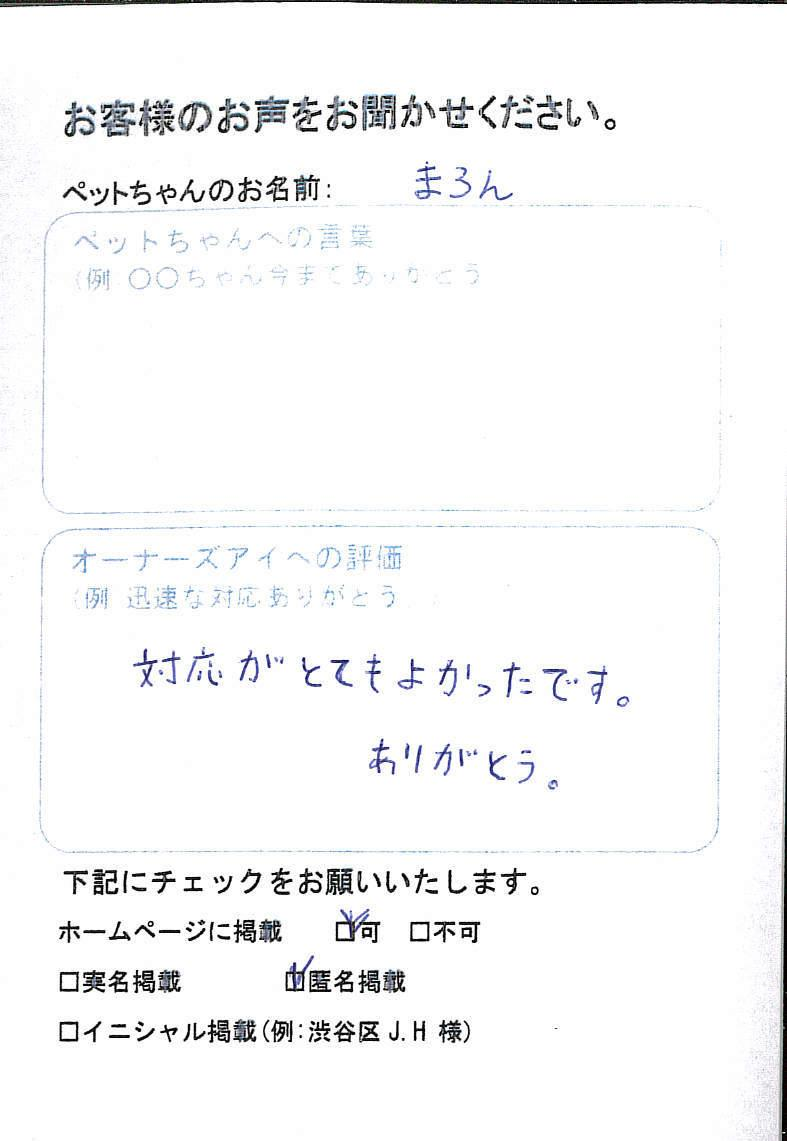 お客様のお声をお聞かせください。
ペットちゃんのお名前: まろん
ペットちゃんへの言葉
(例 〇〇ちゃん今までありがとう
オーナーズアイへの評価
(例 迅速な対応ありがとう
対応がとてもよかったです。
ありがとう。
下記にチェックをお願いいたします。
ホームページに掲載 ☑可 □不可
□実名掲載 ☑匿名掲載
□イニシャル掲載(例:渋谷区 J.H 様)